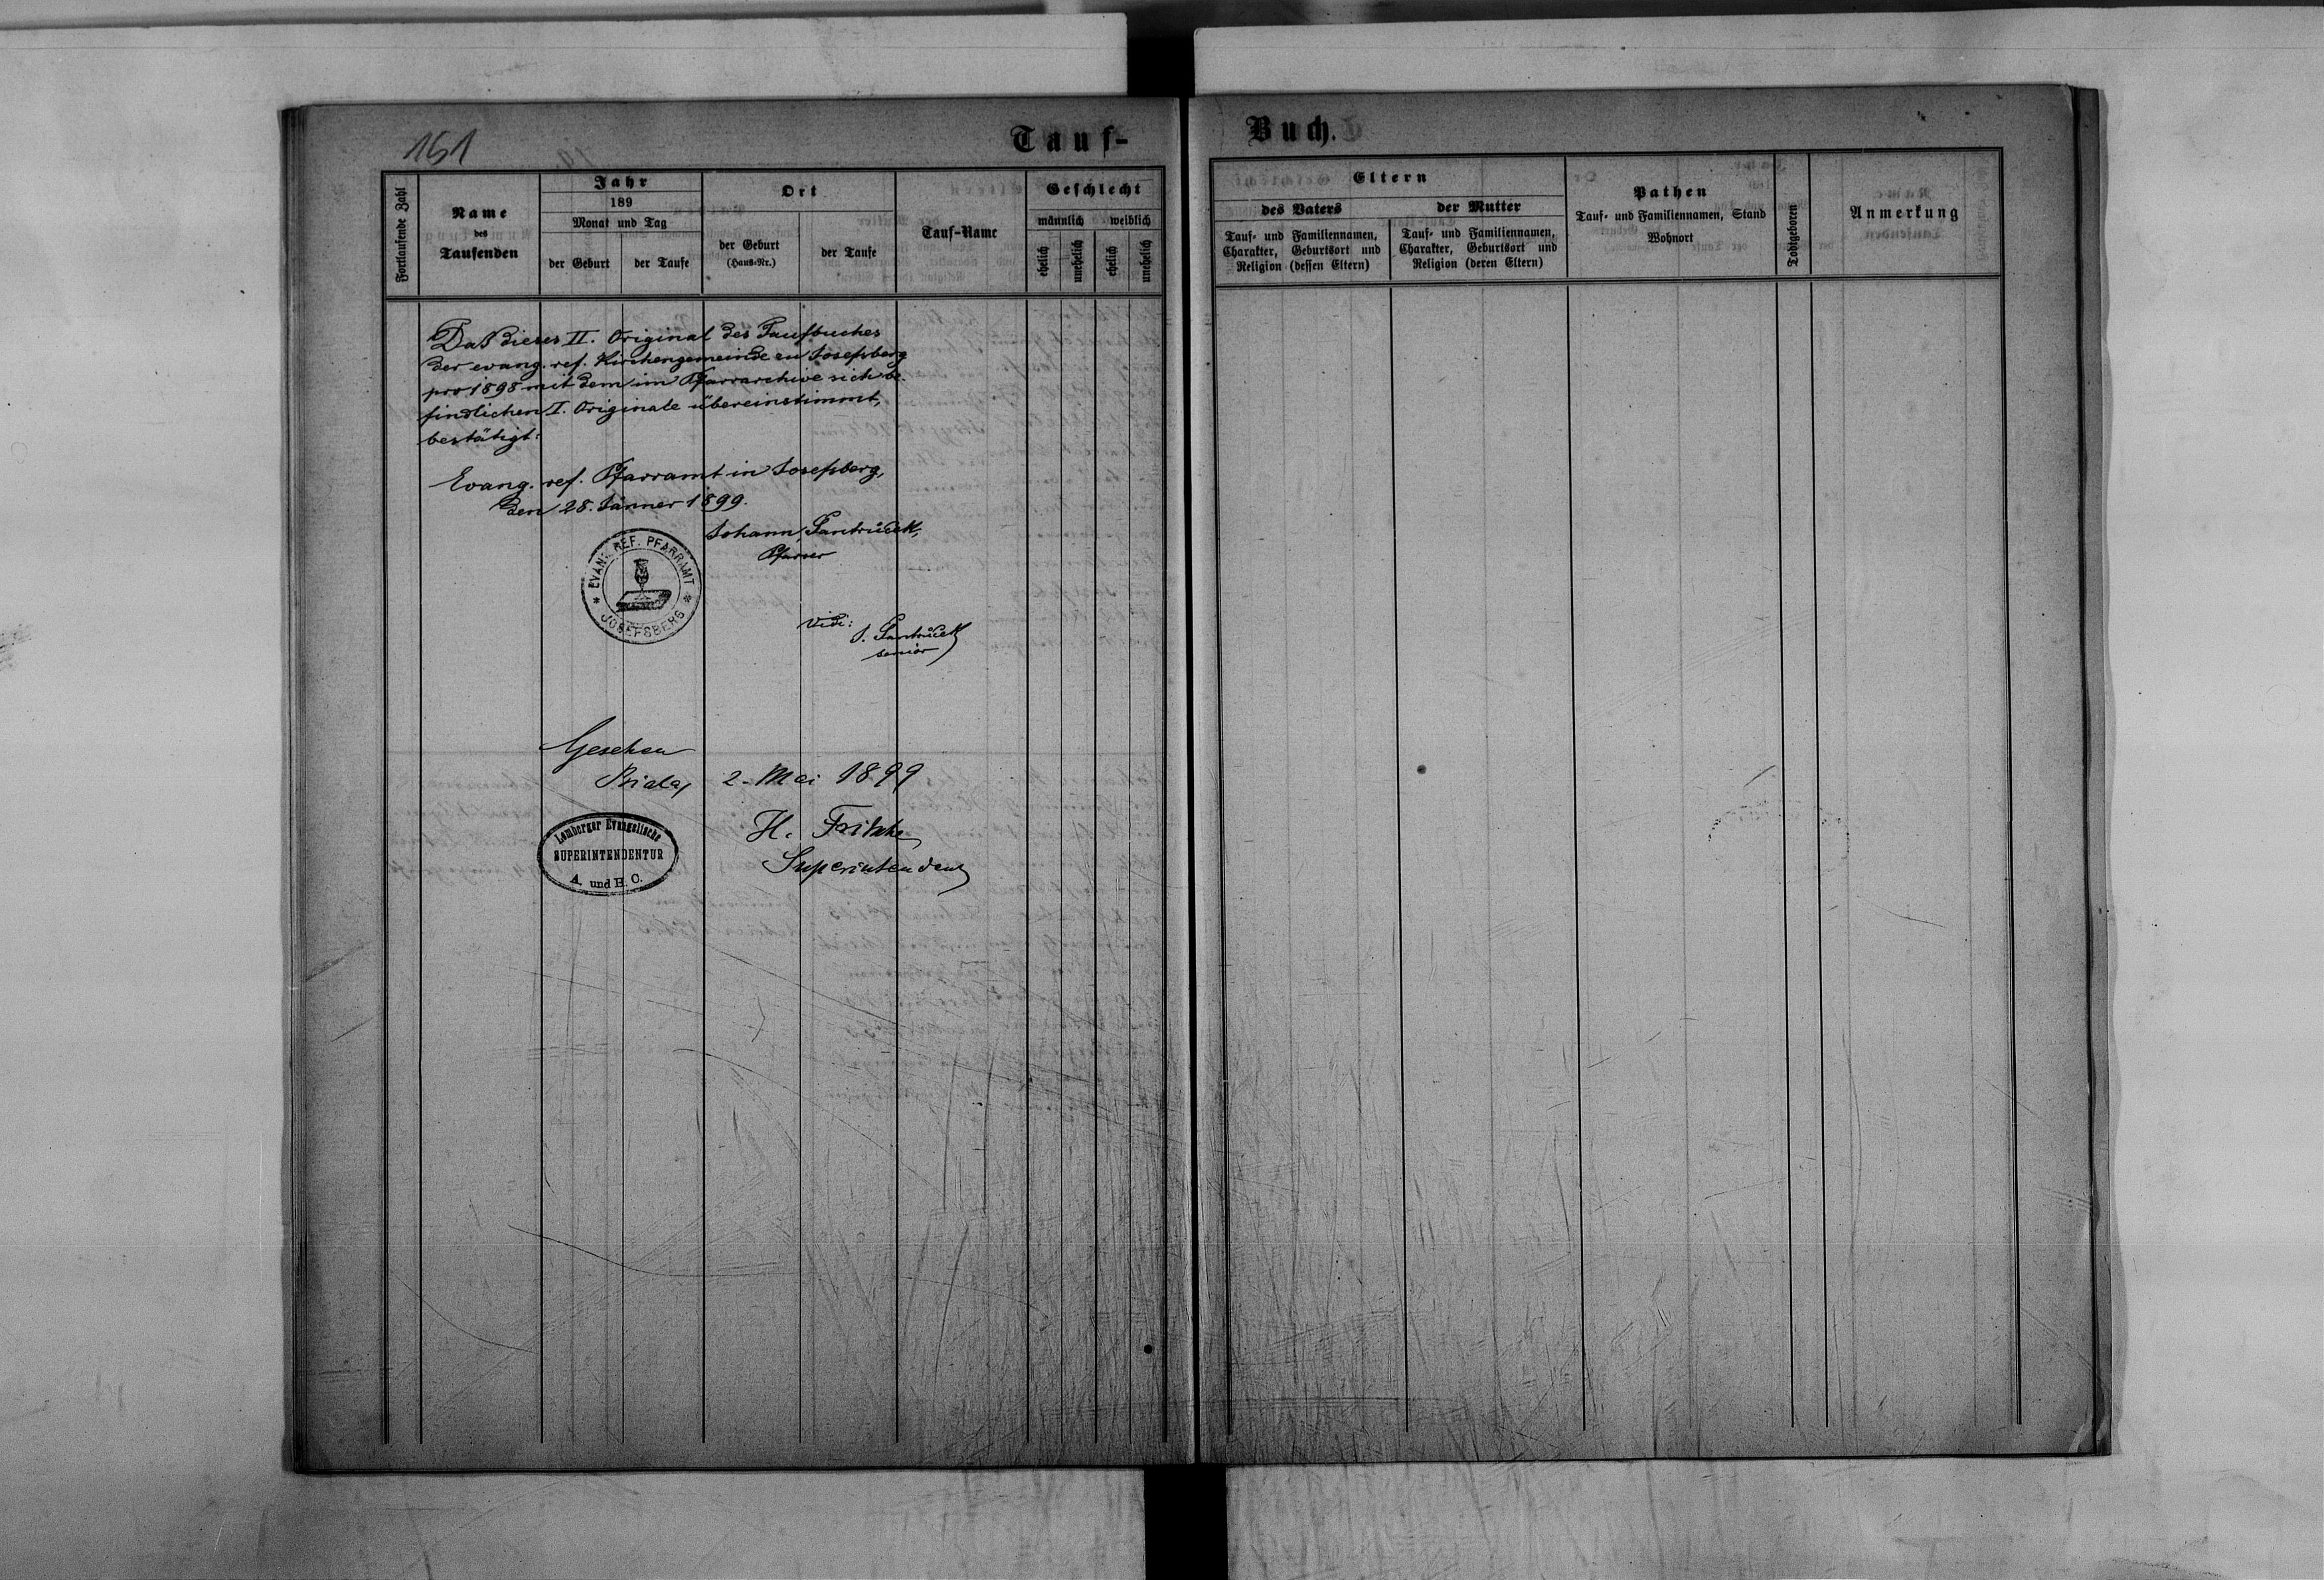 151
Tauf-
Buch.
Fortlaufende Zahl
Name
des
Taufenden
Jahr
189
Monat und Tag
der Geburt
der Taufe
Ort
der Geburt
(Haus-Nr.)
der Taufe
Tauf-Name
Geschlecht
männlich
weiblich
ehelich
unehelich
ehelich
unehelich
Eltern
des Vaters
Tauf- und Familiennamen,
Charakter, Geburtsort und
Religion (dessen Eltern)
der Mutter
Tauf- und Familiennamen,
Charakter, Geburtsort und
Religion (deren Eltern)
Pathen
Tauf- und Familiennamen, Stand
Wohnort
Todtgeboren
Anmerkung
Daß dieses II. Original des Taufbuches
der evang. ref. Kirchengemeinde zu Josefsberg
pro 1898 mit dem im Pfarrarchive sich be-
findlichen I. Originale übereinstimmt,
bestätigt:
Evang. ref. Pfarramt in Josefsberg,
den 28. Jänner 1899.
Johann
Pfarrer
EVANG. REF. PFARRAMT
* JOSEFSBERG *
Vidi:
J.
senior
Gesehen
Biala, 2. Mai 1899
Lemberger Evangelische
SUPERINTENDENTUR
A. und H. C.
H. Fritsche
Superintendent